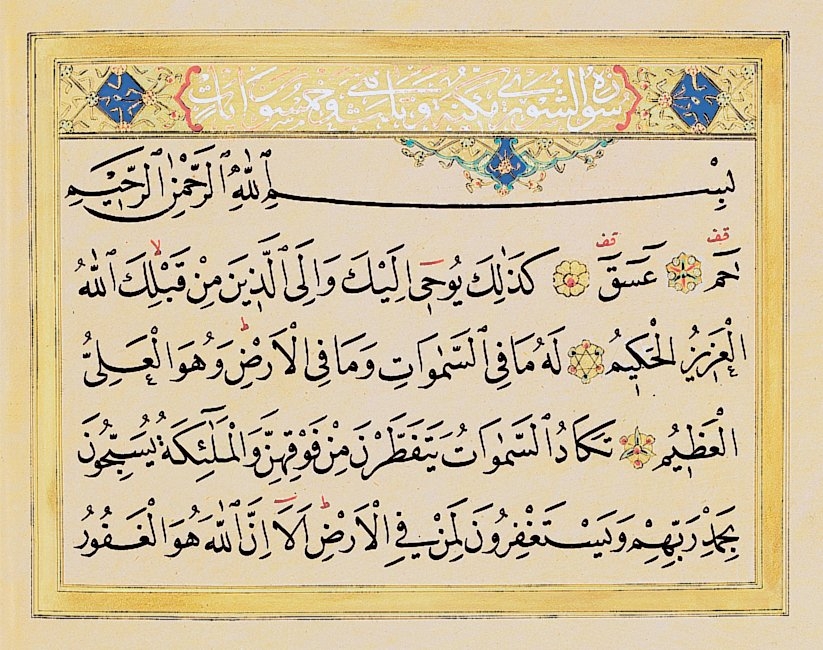 سُورَةُ الشُّورٰى مَكِّيَّةٌ وَخَمْسُونَ اٰيَات
بِسْمِ اللّٰهِ الرَّحْمٰنِ الرَّحِيمِ
حٰمٓ قف عٓسٓقٓ قف كَذٰلِكَ يُوحٓى اِلَيْكَ وَاِلَى الَّذِينَ مِنْ قَبْلِكَ لا اللّٰهُ
الْعَزِيزُ الْحَكِيمُ لَهُ مَا فِى السَّمٰوَاتِ وَمَا فِى الْاَرْضِ ط وَهُوَ الْعَلِىُّ
الْعَظِيمُ تَكَادُ السَّمٰوَاتُ يَتَفَطَّرْنَ مِنْ فَوْقِهِنَّ وَالْمَلٰٓئِكَةُ يُسَبِّحُونَ
بِحَمْدِ رَبِّهِمْ وَيَسْتَغْفِرُونَ لِمَنْ فِى الْاَرْضِ ط اَلَٓا اِنَّ اللّٰهَ هُوَ الْغَفُورُ